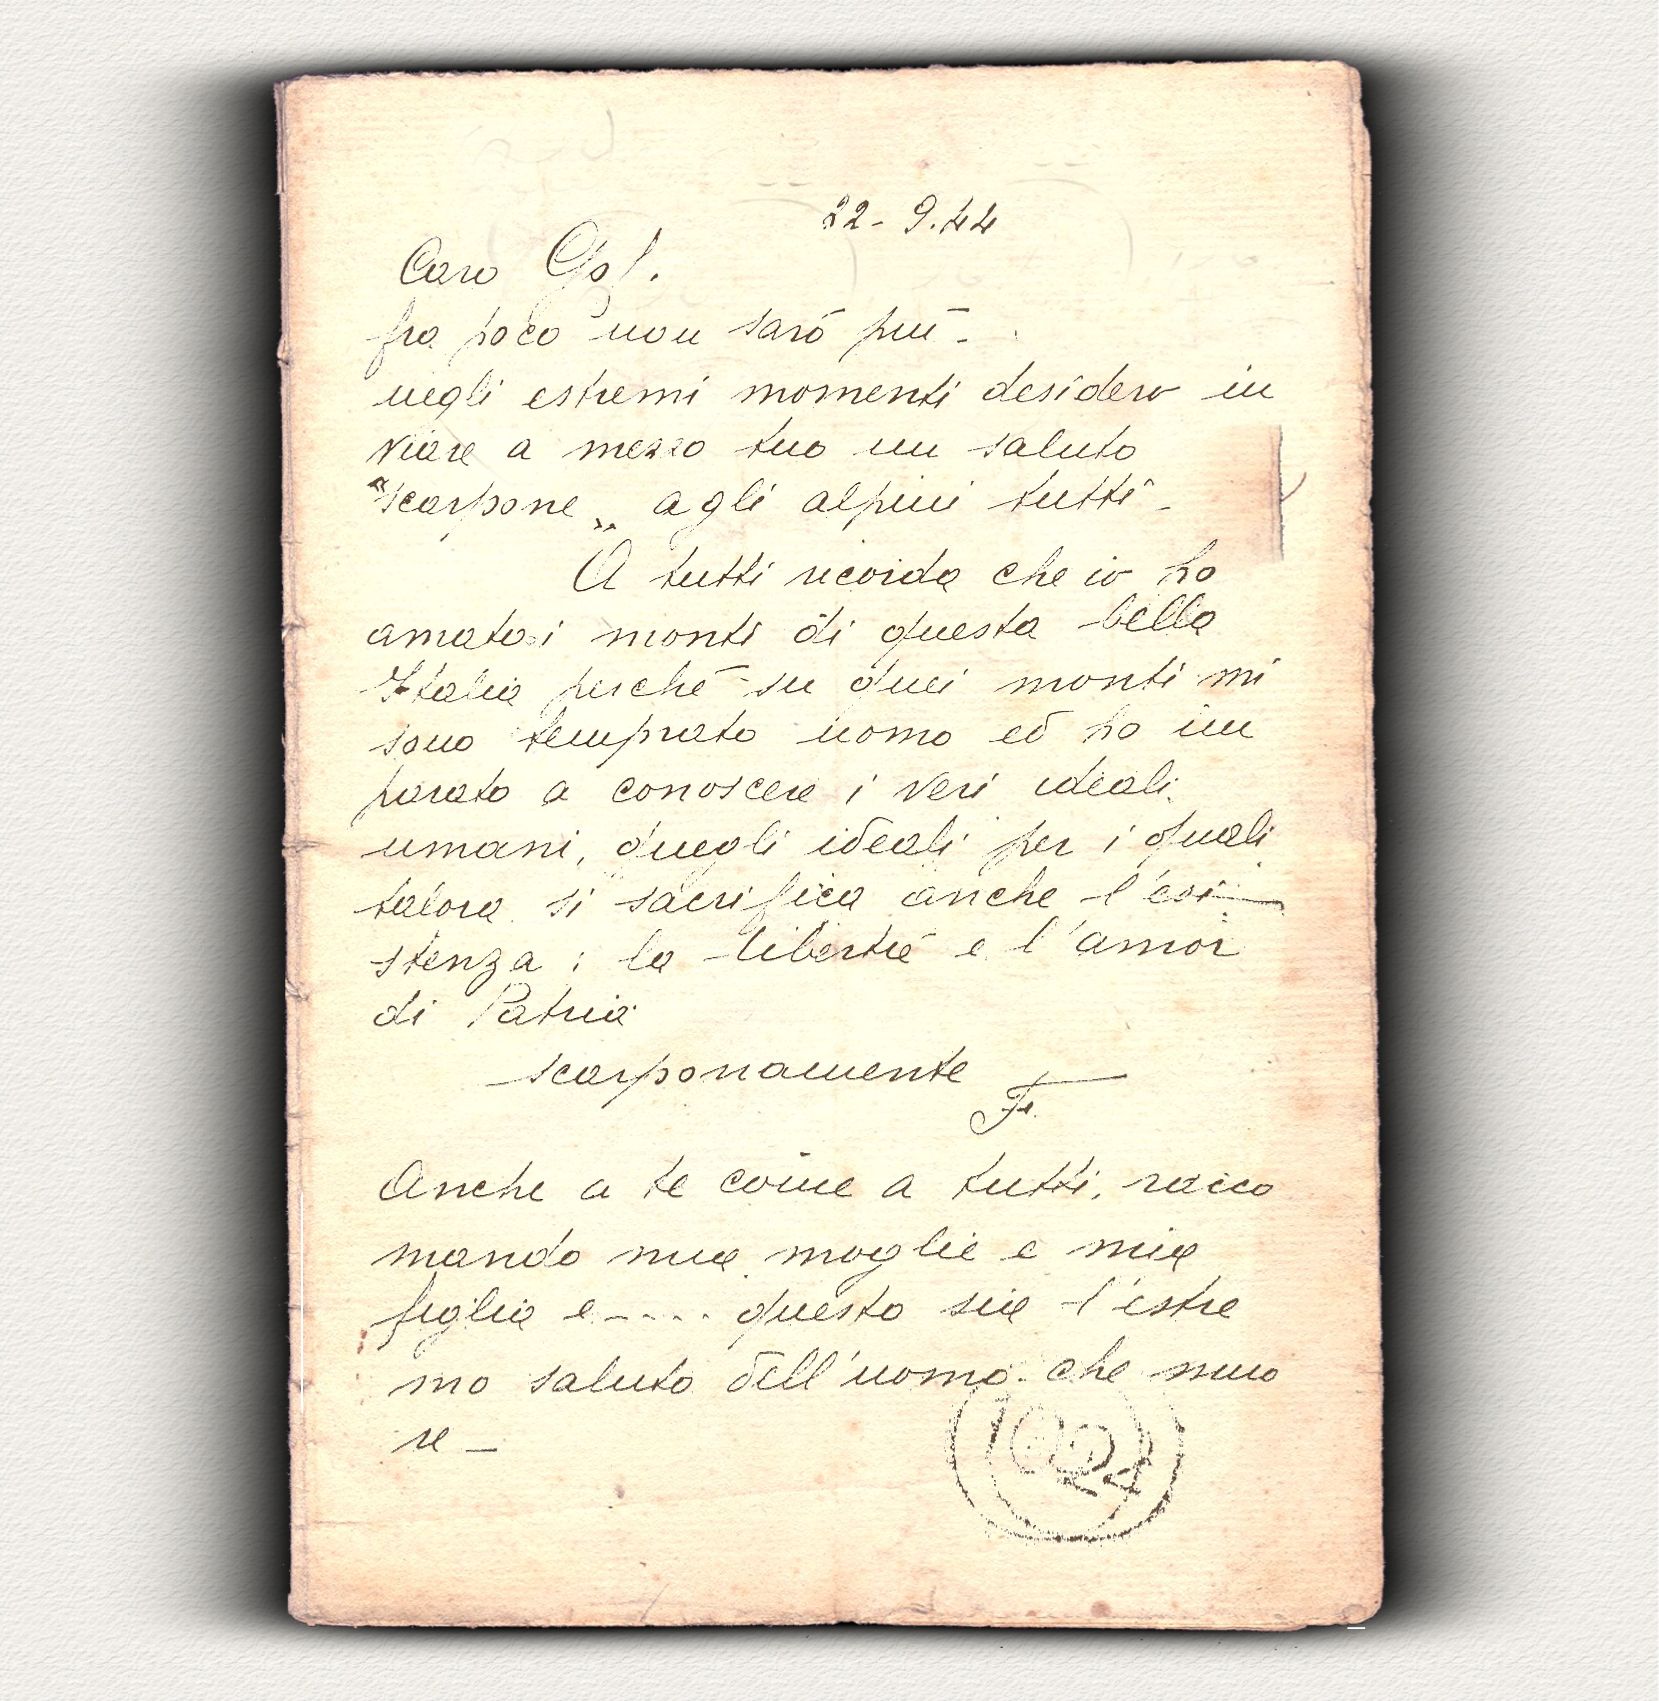 22-9.44
Caro Gol.
fra poco non sarò più -
negli estremi momenti desidero in
viare a mezzo tuo un saluto
"scarpone„ agli alpini tutti -
A tutti ricorda che io ho
amato i monti di questa bella
Italia perché su quei monti mi
sono temprato uomo ed ho im
parato a conoscere i veri ideali
umani, quegli ideali per i quali
talora si sacrifica anche l'esi-
stenza: la libertà e l'amor
di Patria
scarponamente
F.
Anche a te come a tutti, racco
mando mia moglie e mia
figlia e..... questo sia l'estre
mo saluto dell'uomo che muo
re -